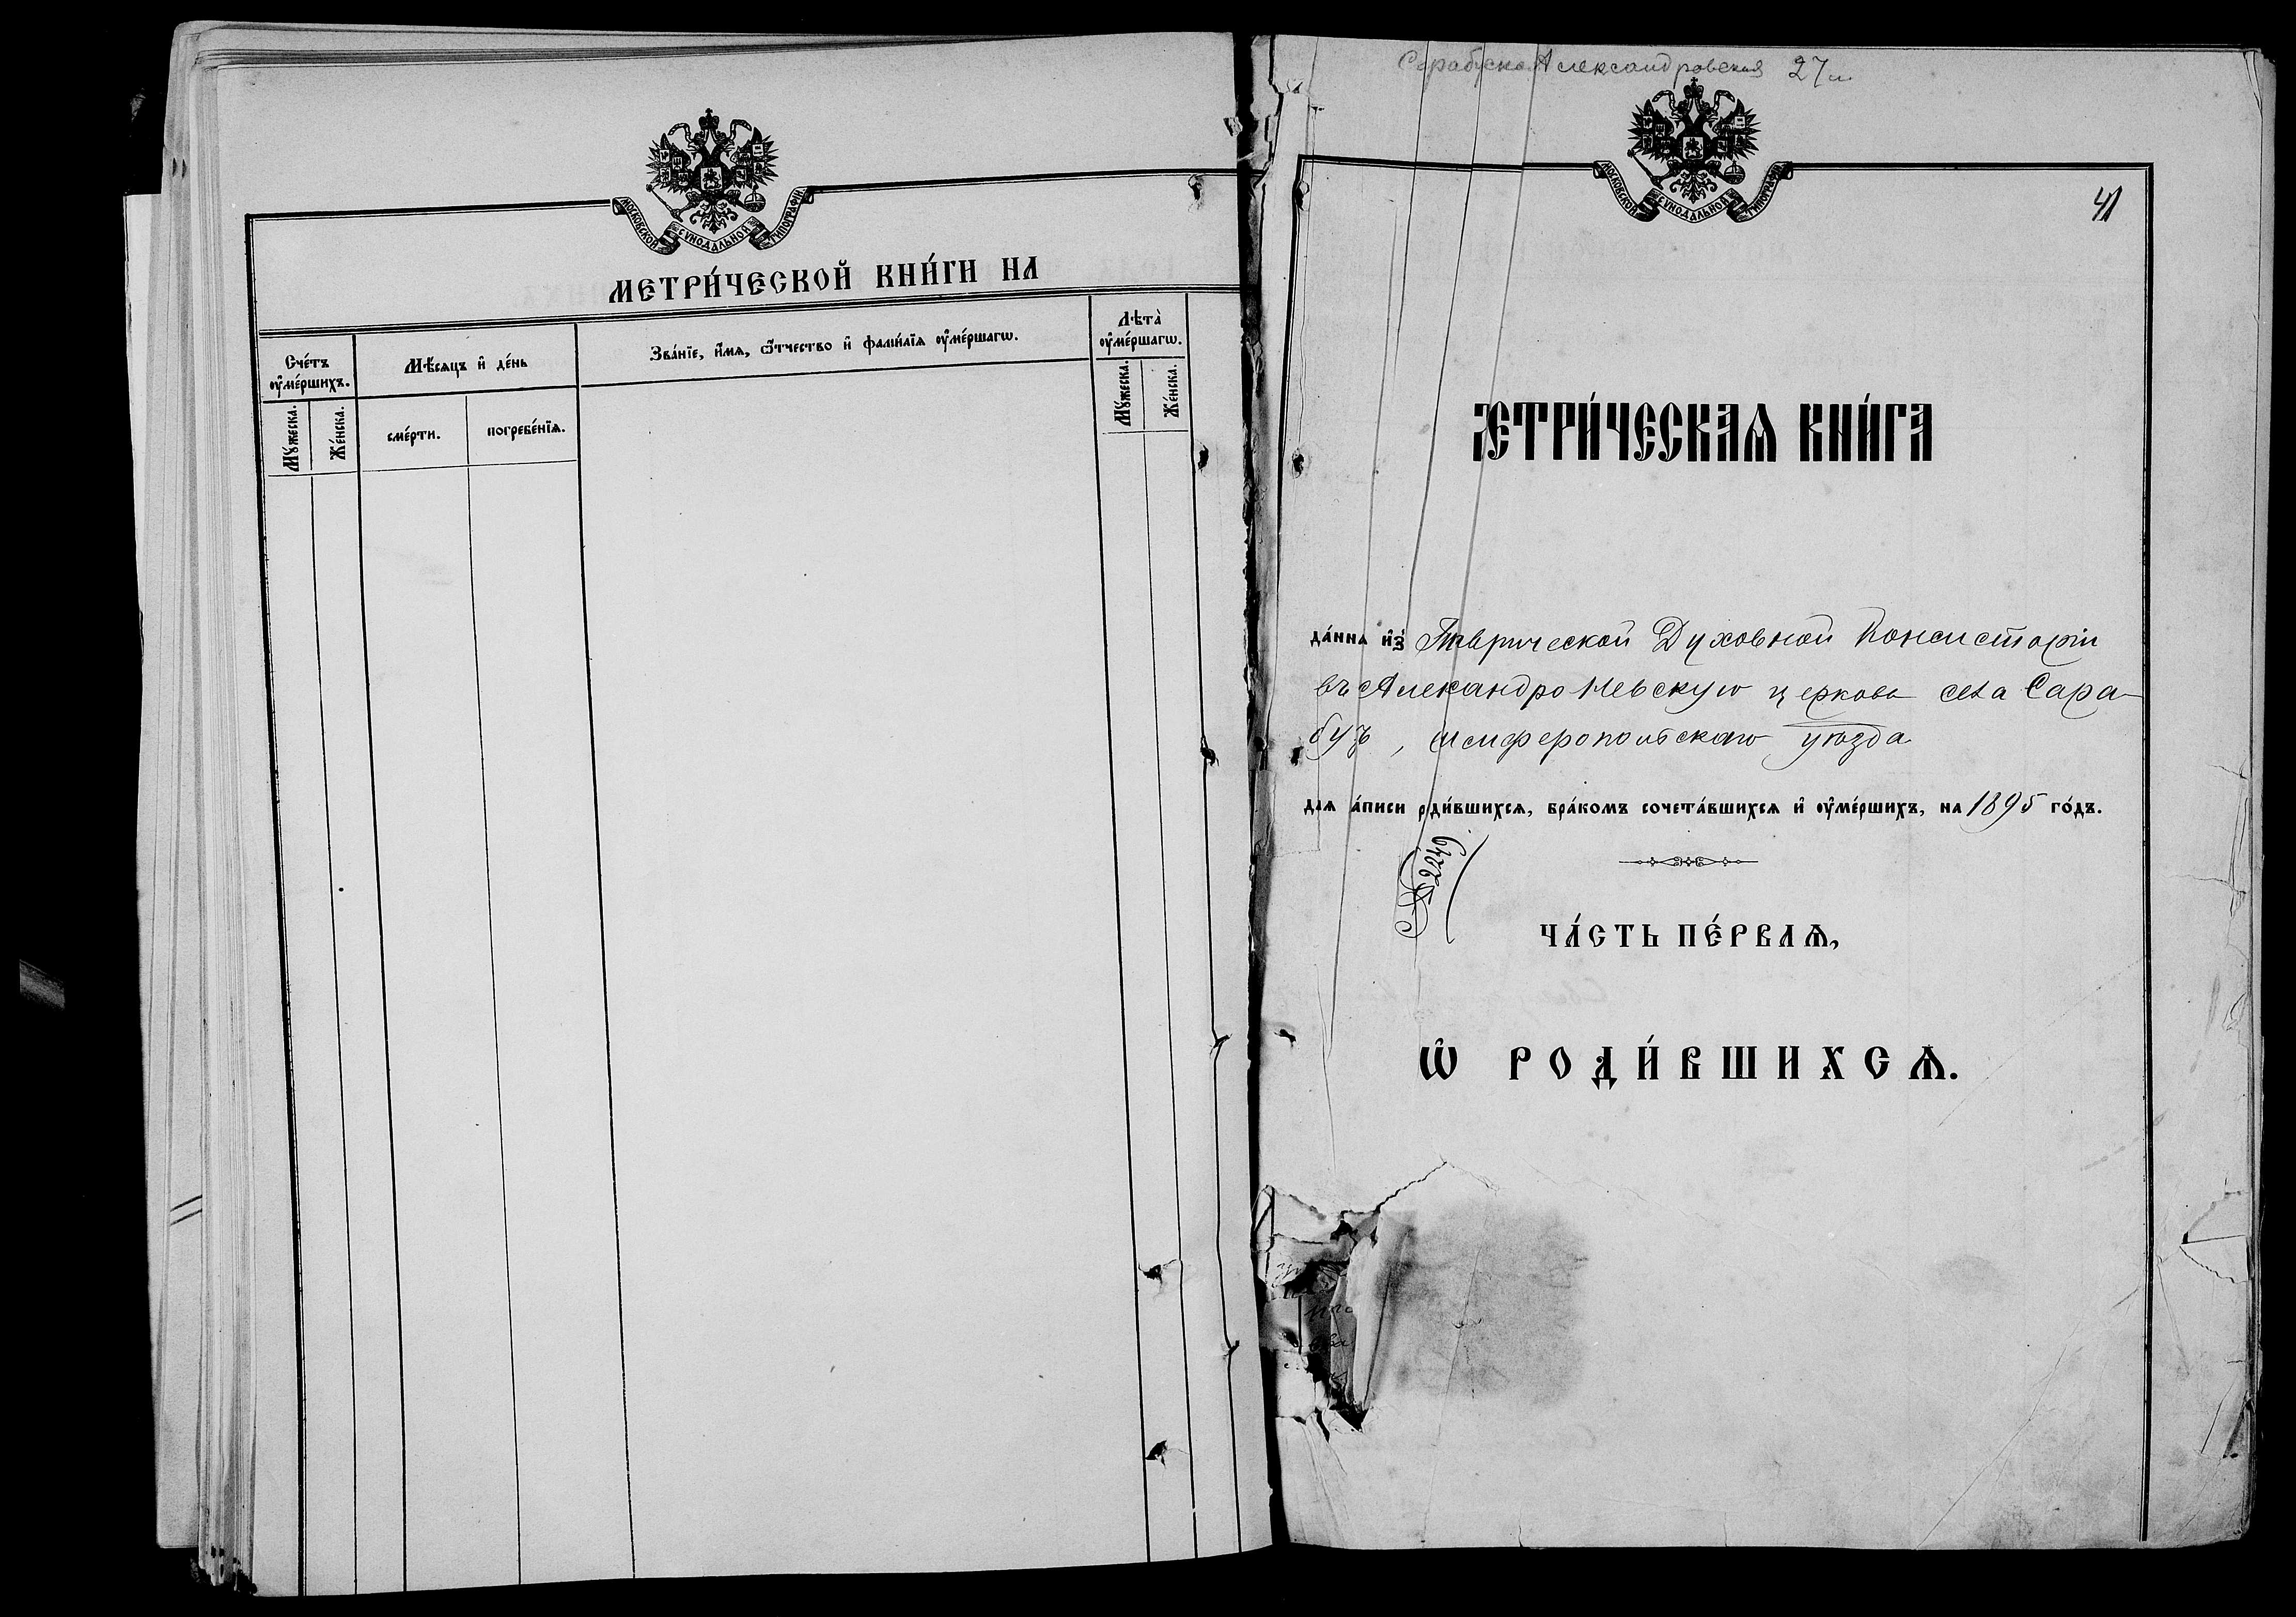 МОСКОВСКОЙ СѴНОДАЛЬНОЙ ТИПОГРАФІИ
МЕТРИ́ЧЕСКОЙ КНИ́ГИ НА
Сче́тъ ᲂу҆ме́ршихъ.
Мѣ́сяцъ и҆ де́нь
Зва́нїе, и҆́мѧ, ѻ҆́тчество и҆ фами́лїѧ ᲂу҆ме́ршагѡ.
Лѣта̀ ᲂу҆ме́ршагѡ.
Мꙋ́жеска.
Же́нска.
сме́рти.
погребе́нїѧ.
Мꙋ́жеска.
Же́нска.
Александровская 27 л.
МОСКОВСКОЙ СѴНОДАЛЬНОЙ ТИПОГРАФІИ
41
ЕТРИ́ЧЕСКАѦ КНИ́ГА
да́нна и҆з̾ Таврической Духовной Консисторіи
въ Александро Невскую церковь села Сара-
бузъ, Симферопольскаго уѣзда
длѧ а́писи рди́вшихсѧ, бра́комъ сочета́вшихсѧ и҆ ᲂу҆ме́ршихъ, на 1895 го́дъ.
№ 2249
ЧА́СТЬ ПЕ́РВАѦ,
Ѡ҆ РОДИ́ВШИХСѦ.